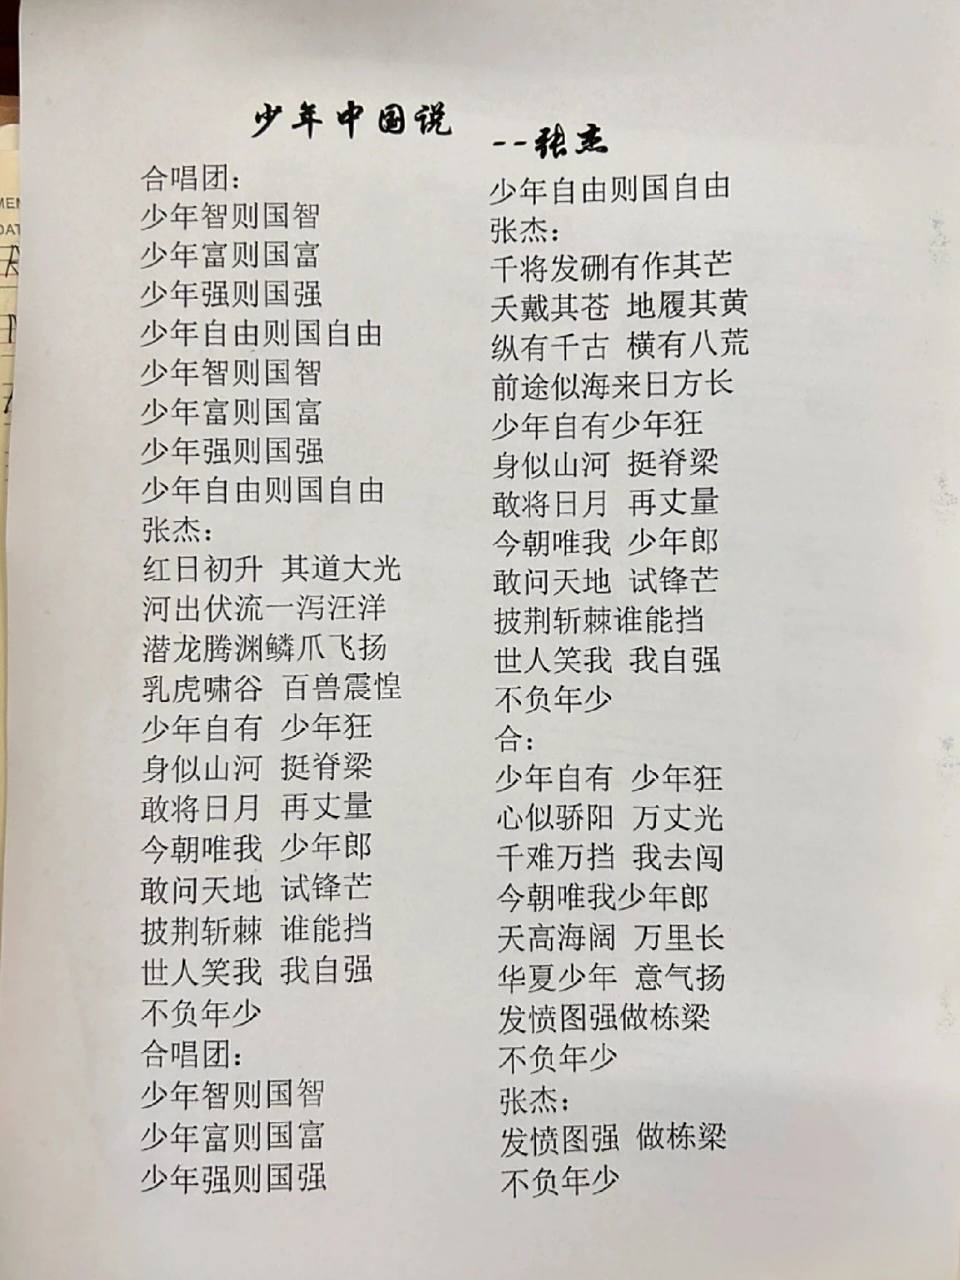 少年中国说
--张杰
合唱团：
少年智则国智
少年富则国富
少年强则国强
少年自由则国自由
少年智则国智
少年富则国富
少年强则国强
少年自由则国自由
张杰：
红日初升 其道大光
河出伏流一泻汪洋
潜龙腾渊鳞爪飞扬
乳虎啸谷 百兽震惶
少年自有 少年狂
身似山河 挺脊梁
敢将日月 再丈量
今朝唯我 少年郎
敢问天地 试锋芒
披荆斩棘 谁能挡
世人笑我 我自强
不负年少
合唱团：
少年智则国智
少年富则国富
少年强则国强
少年自由则国自由
张杰：
千将发硎有作其芒
天戴其苍 地履其黄
纵有千古 横有八荒
前途似海来日方长
少年自有少年狂
身似山河 挺脊梁
敢将日月 再丈量
今朝唯我 少年郎
敢问天地 试锋芒
披荆斩棘谁能挡
世人笑我 我自强
不负年少
合：
少年自有 少年狂
心似骄阳 万丈光
千难万挡 我去闯
今朝唯我少年郎
天高海阔 万里长
华夏少年 意气扬
发愤图强做栋梁
不负年少
张杰：
发愤图强 做栋梁
不负年少